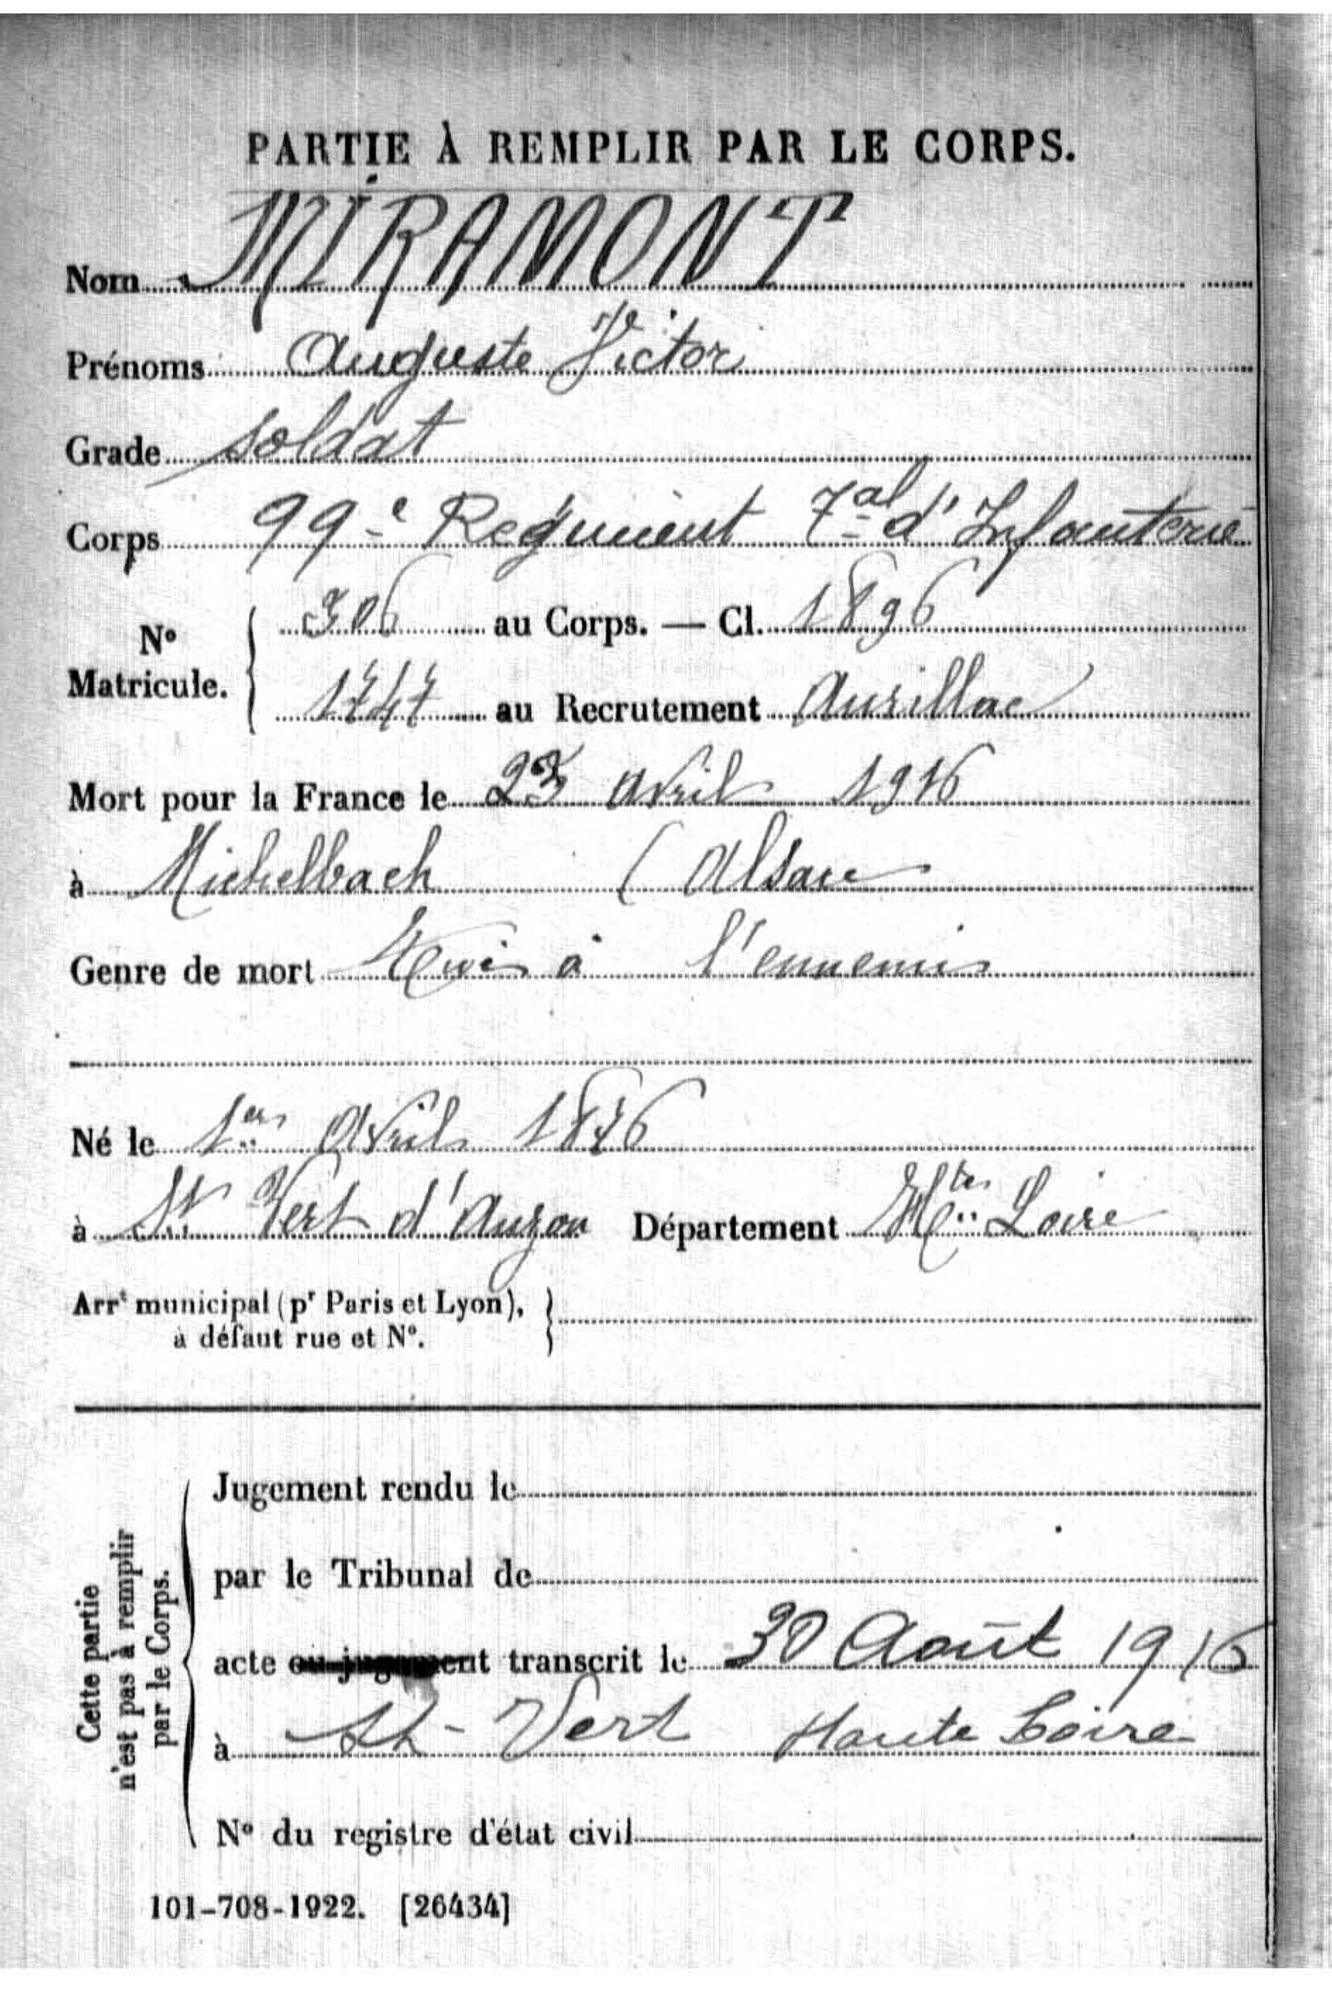 PARTIE À REMPLIR PAR LE CORPS.
Nom MIRAMONT
Prénoms Auguste Victor
Grade soldat
Corps 99e Régiment Tal d'Infanterie
N° Matricule. 306 au Corps. — Cl. 1896
1747 au Recrutement Aurillac
Mort pour la France le 23 Avril 1916
à Michelbach (Alsace
Genre de mort Tué à l'ennemi
Né le 1er Avril 1876
à St Vert d'Auzon Département Hte Loire
Arrt municipal (pr Paris et Lyon),
à défaut rue et N°.
Cette partie
n'est pas à remplir
par le Corps.
Jugement rendu le
par le Tribunal de
acte ou jugement transcrit le 30 Août 1916
à St-Vert Haute Loire
N° du registre d'état civil
101-708-1922. [26434]